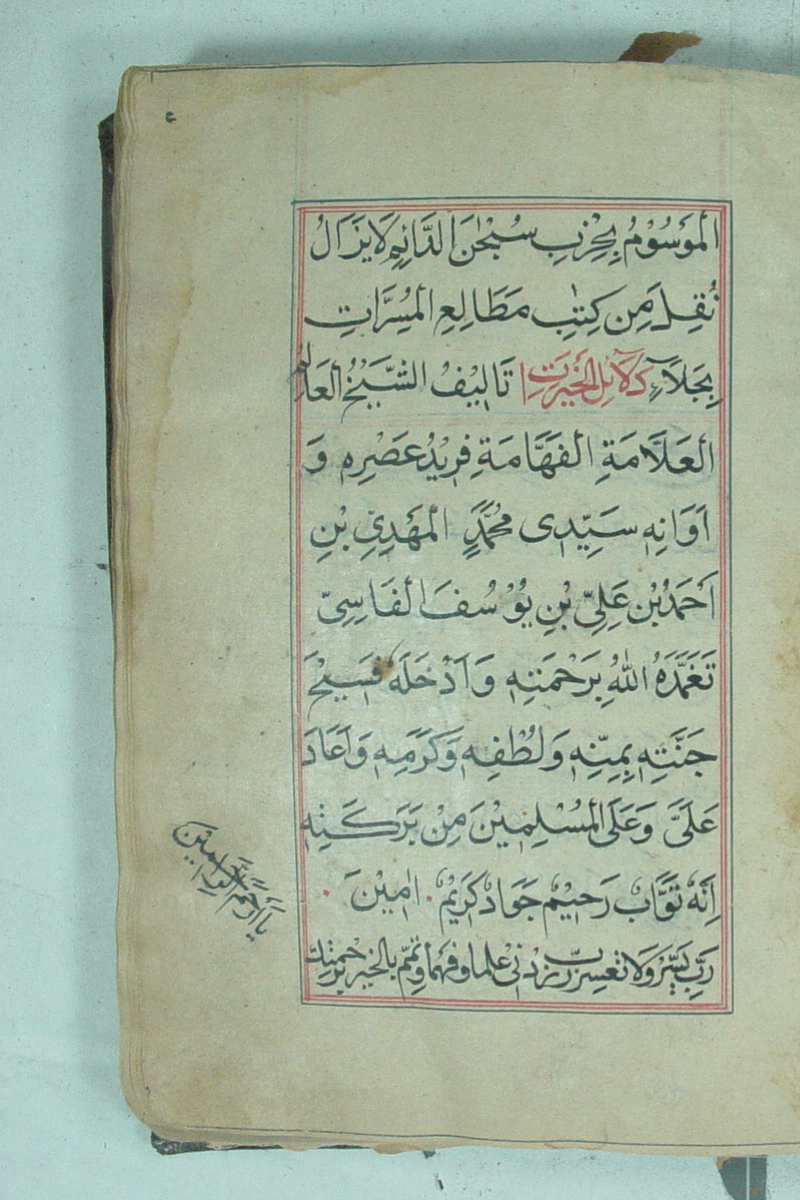 ٤
المَوْسُوْمُ بِحِزْبِ سُبْحٰنَ الدَّائِمِ لَا يَزَالُ
نُقِلَ مِن كِتٰبِ مَطَالِعِ الْمَسَرَّاتِ
بِجَلَآءِ دَلَآئِلِ الْخَيْرَاتِ تَالِيْفُ الشَّيْخِ الْعَالِمِ
الْعَلَّامَةِ الْفَهَّامَةِ فَرِيْدُ عَصْرِهِ وَ
اَوَانِهِ سَيِّدِى مُحَمَّدٍ الْمَهْدِيِّ بْنِ
اَحْمَدُ بْنِ عَلِيِّ بْنِ يُوْسُفَ الْفَاسِيّ
تَغَمَّدَهُ اللّٰهُ بِرَحْمَتِهِ وَاَدْخَلَهُ فَسِيْحَ
جَنَّتِهِ بِمَنِّهِ وَلُطْفِهِ وَكَرَمِهِ وَاَعَادَ
عَلَىَّ وَعَلَى الْمُسْلِمِيْنَ مِنْ بَرَكَتِهِ
اِنَّهُ تَوَّابٌ رَحِيْمٌ جَوَادٌ كَرِيْمٌ . اٰمِيْنَ .
رَبِّ يَسِّرْ وَلَا تُعَسِّرْ رَبِّ زِدْنِىْ عِلْمًا وَفَهْمًا وَتَمِّمْ بِالْخَيْرِ بِرَحْمَتِكَ
يَا اَرْحَمَ الرَّاحِمِيْنَ